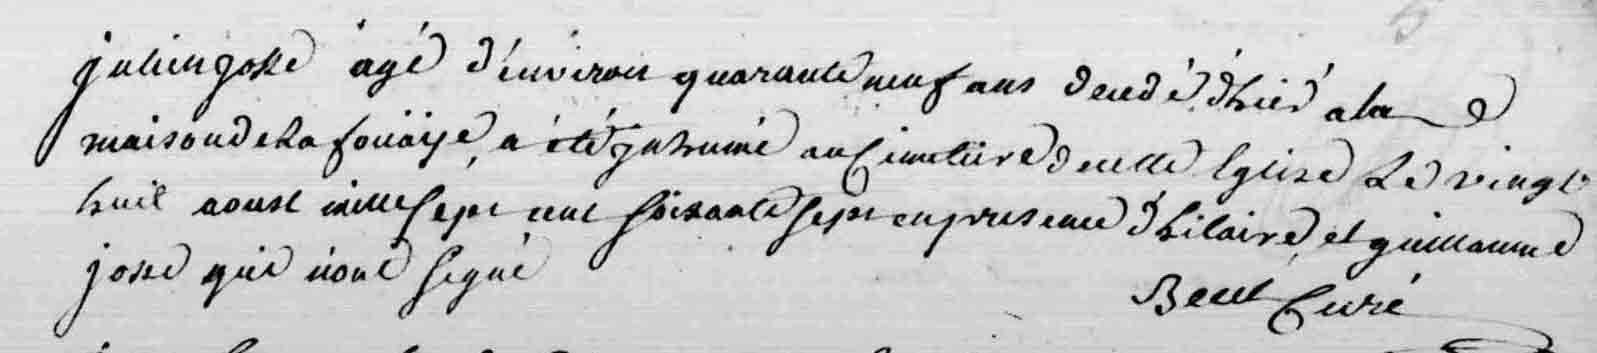 julien josse agé d'environ quarante neuf ans decedé d'hier a la
maison de la foüaÿe, a été jnhumé au Cimetiere de cette Eglise Le vingt
huit aoust mille sept cent soixante sept en presence d'hilaire, et guillaume
josse qui n'ont signé
Curé